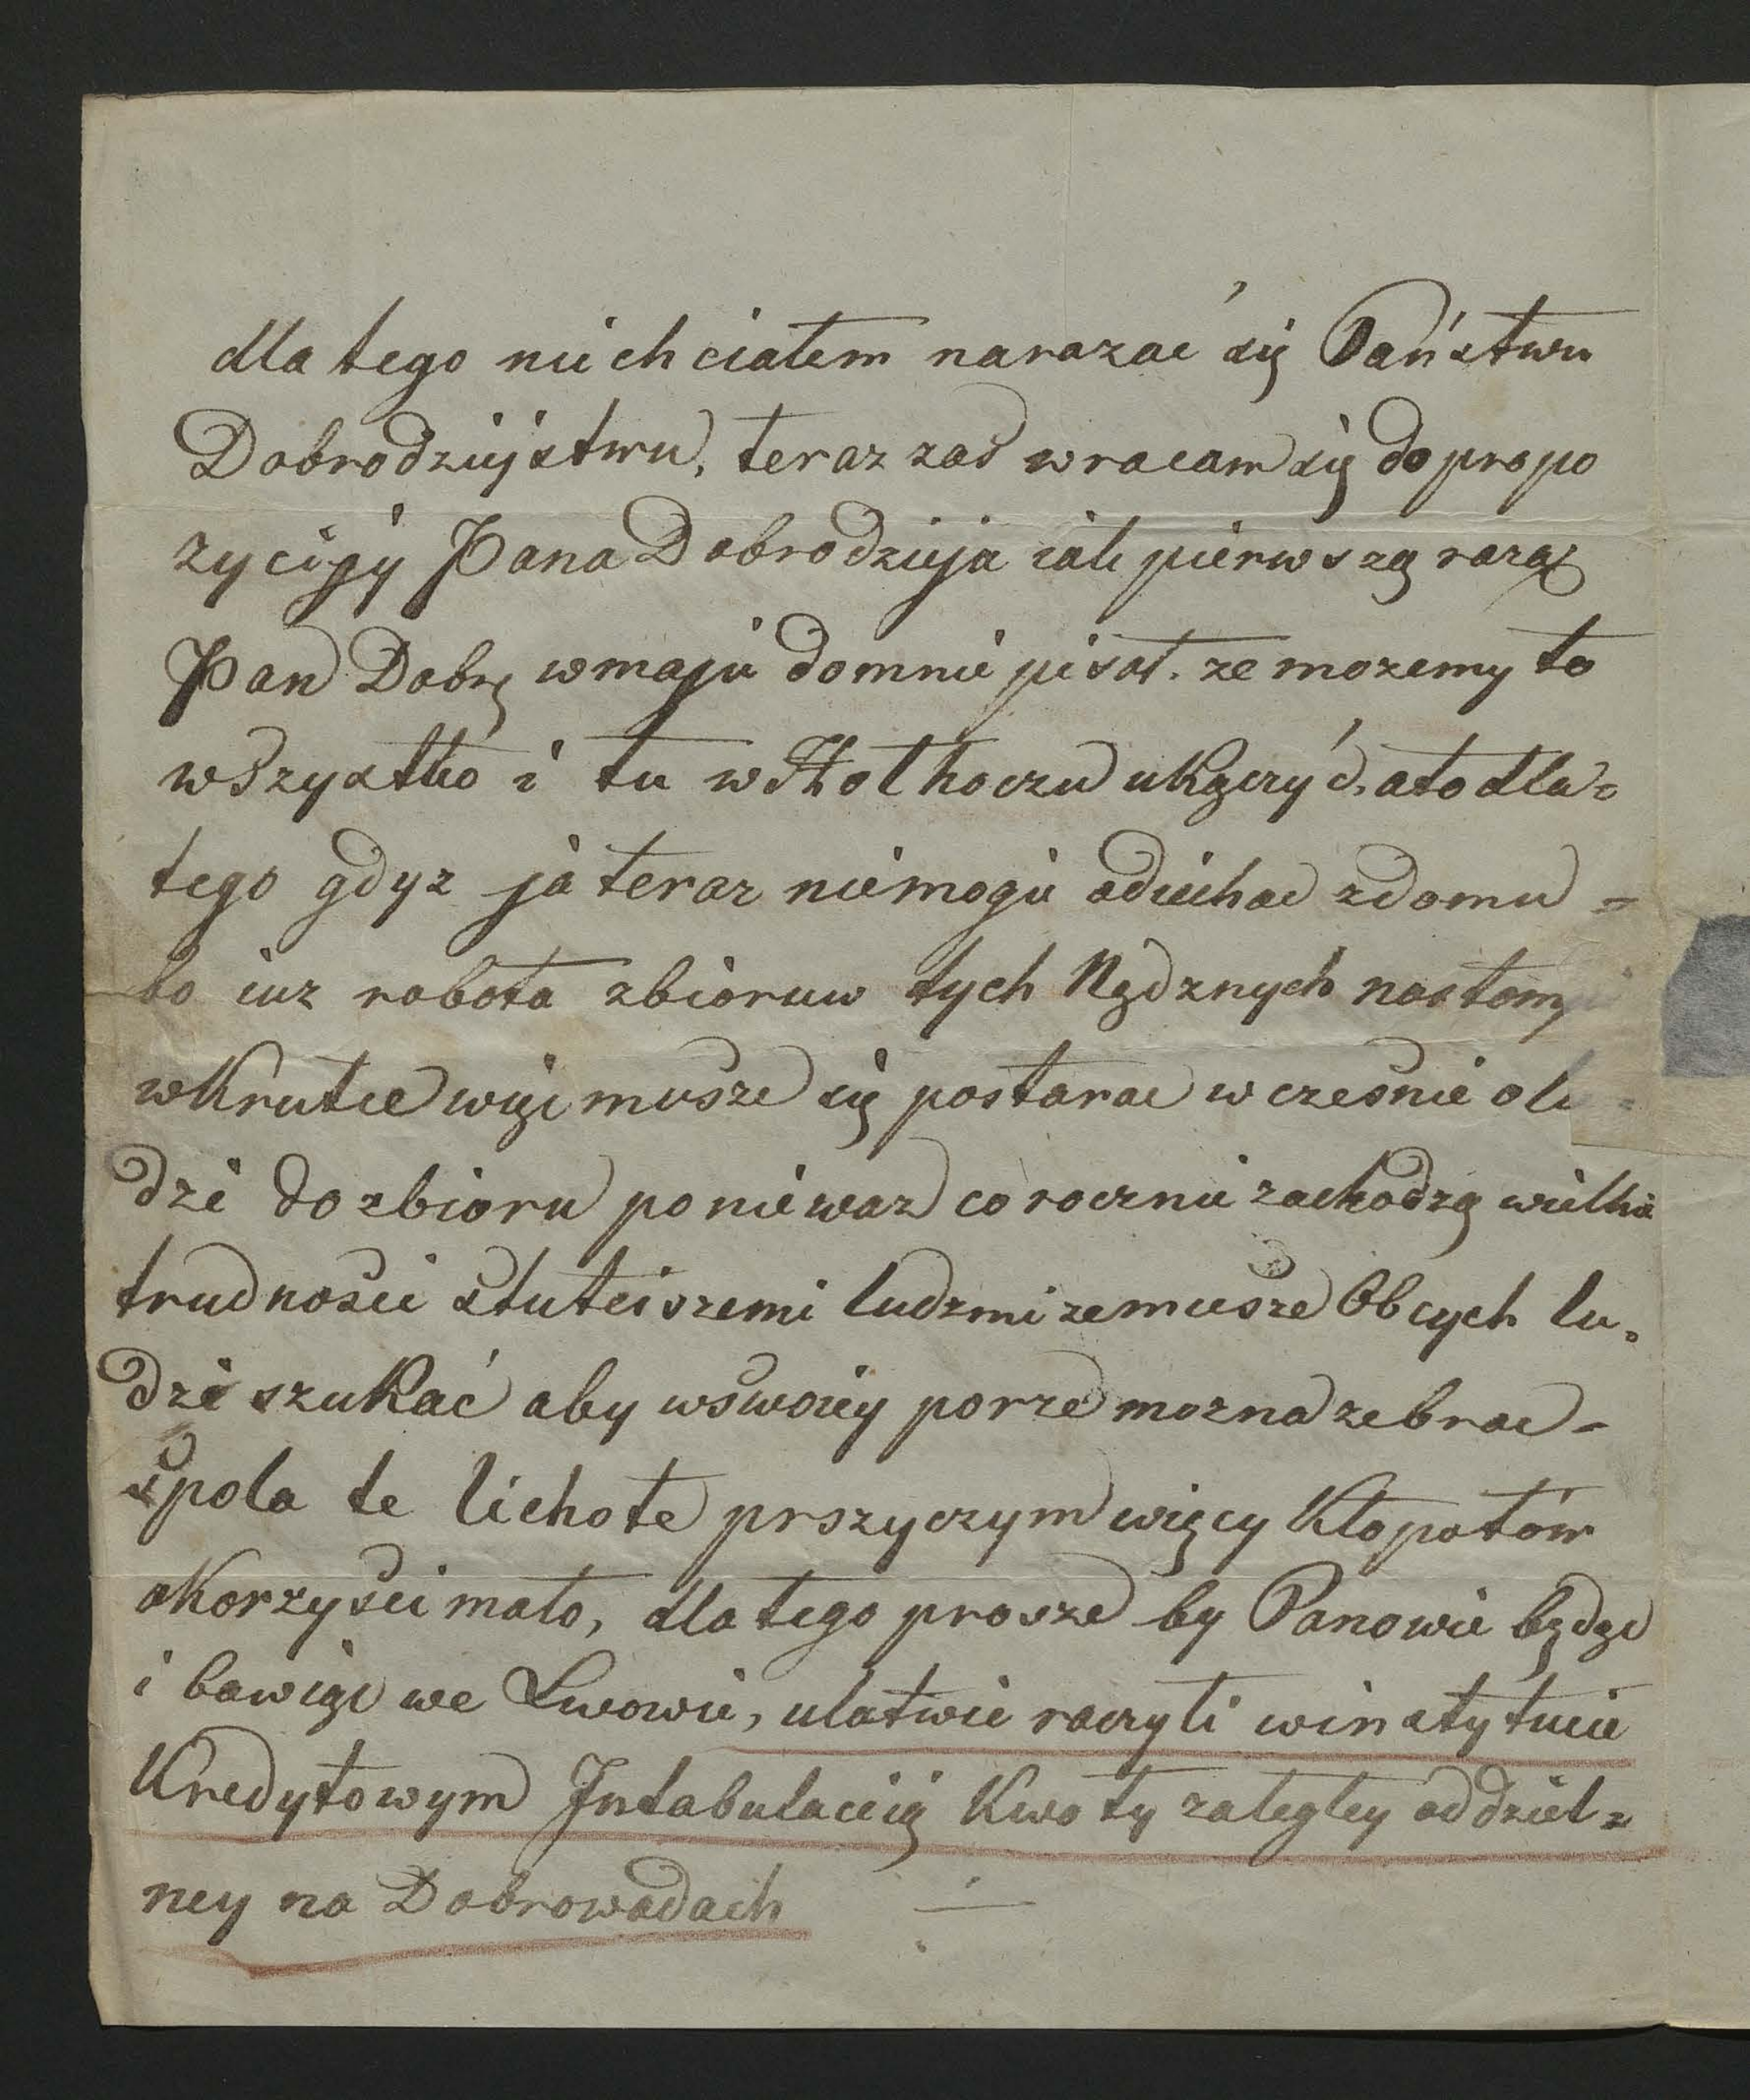 dla tego nie chciałem narazac się Państwu
Dobrodziejstwu, teraz zaś wracam się do propo
zycijy Pana Dobrodzieja iak pierwszą razą
Pan Dobr. w maju do mnie pisał. ze mozemy to
wszystko i tu w Hołhoczu ukączyć, a to dla=
tego gdyz ja teraz niemogie odiechac z domu =
bo iuz robota zbioruw tych Nędznych nastąmpi
wKrutce więc musze się postarac wczesnie o lu=
dzi do zbioru poniewaz corocznie zachodzą wielkie
trudnosci stuteiszemi ludzmi ze musze Obcych lu=
dzi szukać aby wswoiey porze mozna zebrac =
spola te lichote prszyczym więcy Kłopotów
a Korzysci mało, dla tego prosze by Panowie będąc
i bawiąc we Lwowie, ułatwic raczyli winstytucie
Kredytowym Intabulaciią Kwoty zaległey oddziel=
ney na Dobrowodach